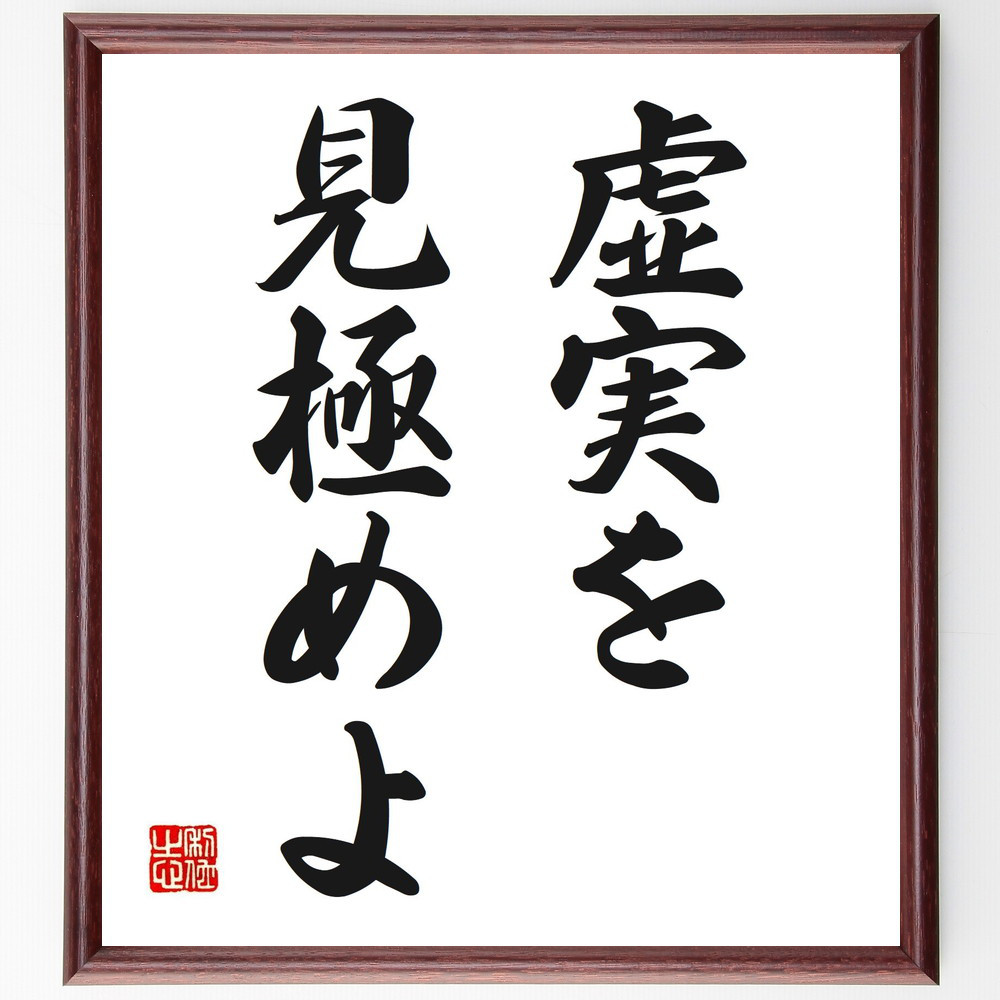 虚実を
見極めよ